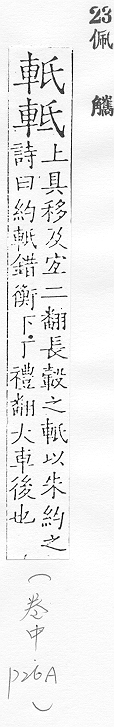 23 佩觿
軝軧
上具移及宐二翻長轂之軝以朱約之
詩曰約軝錯衡下丁禮翻大車後也
（卷中 p26A）